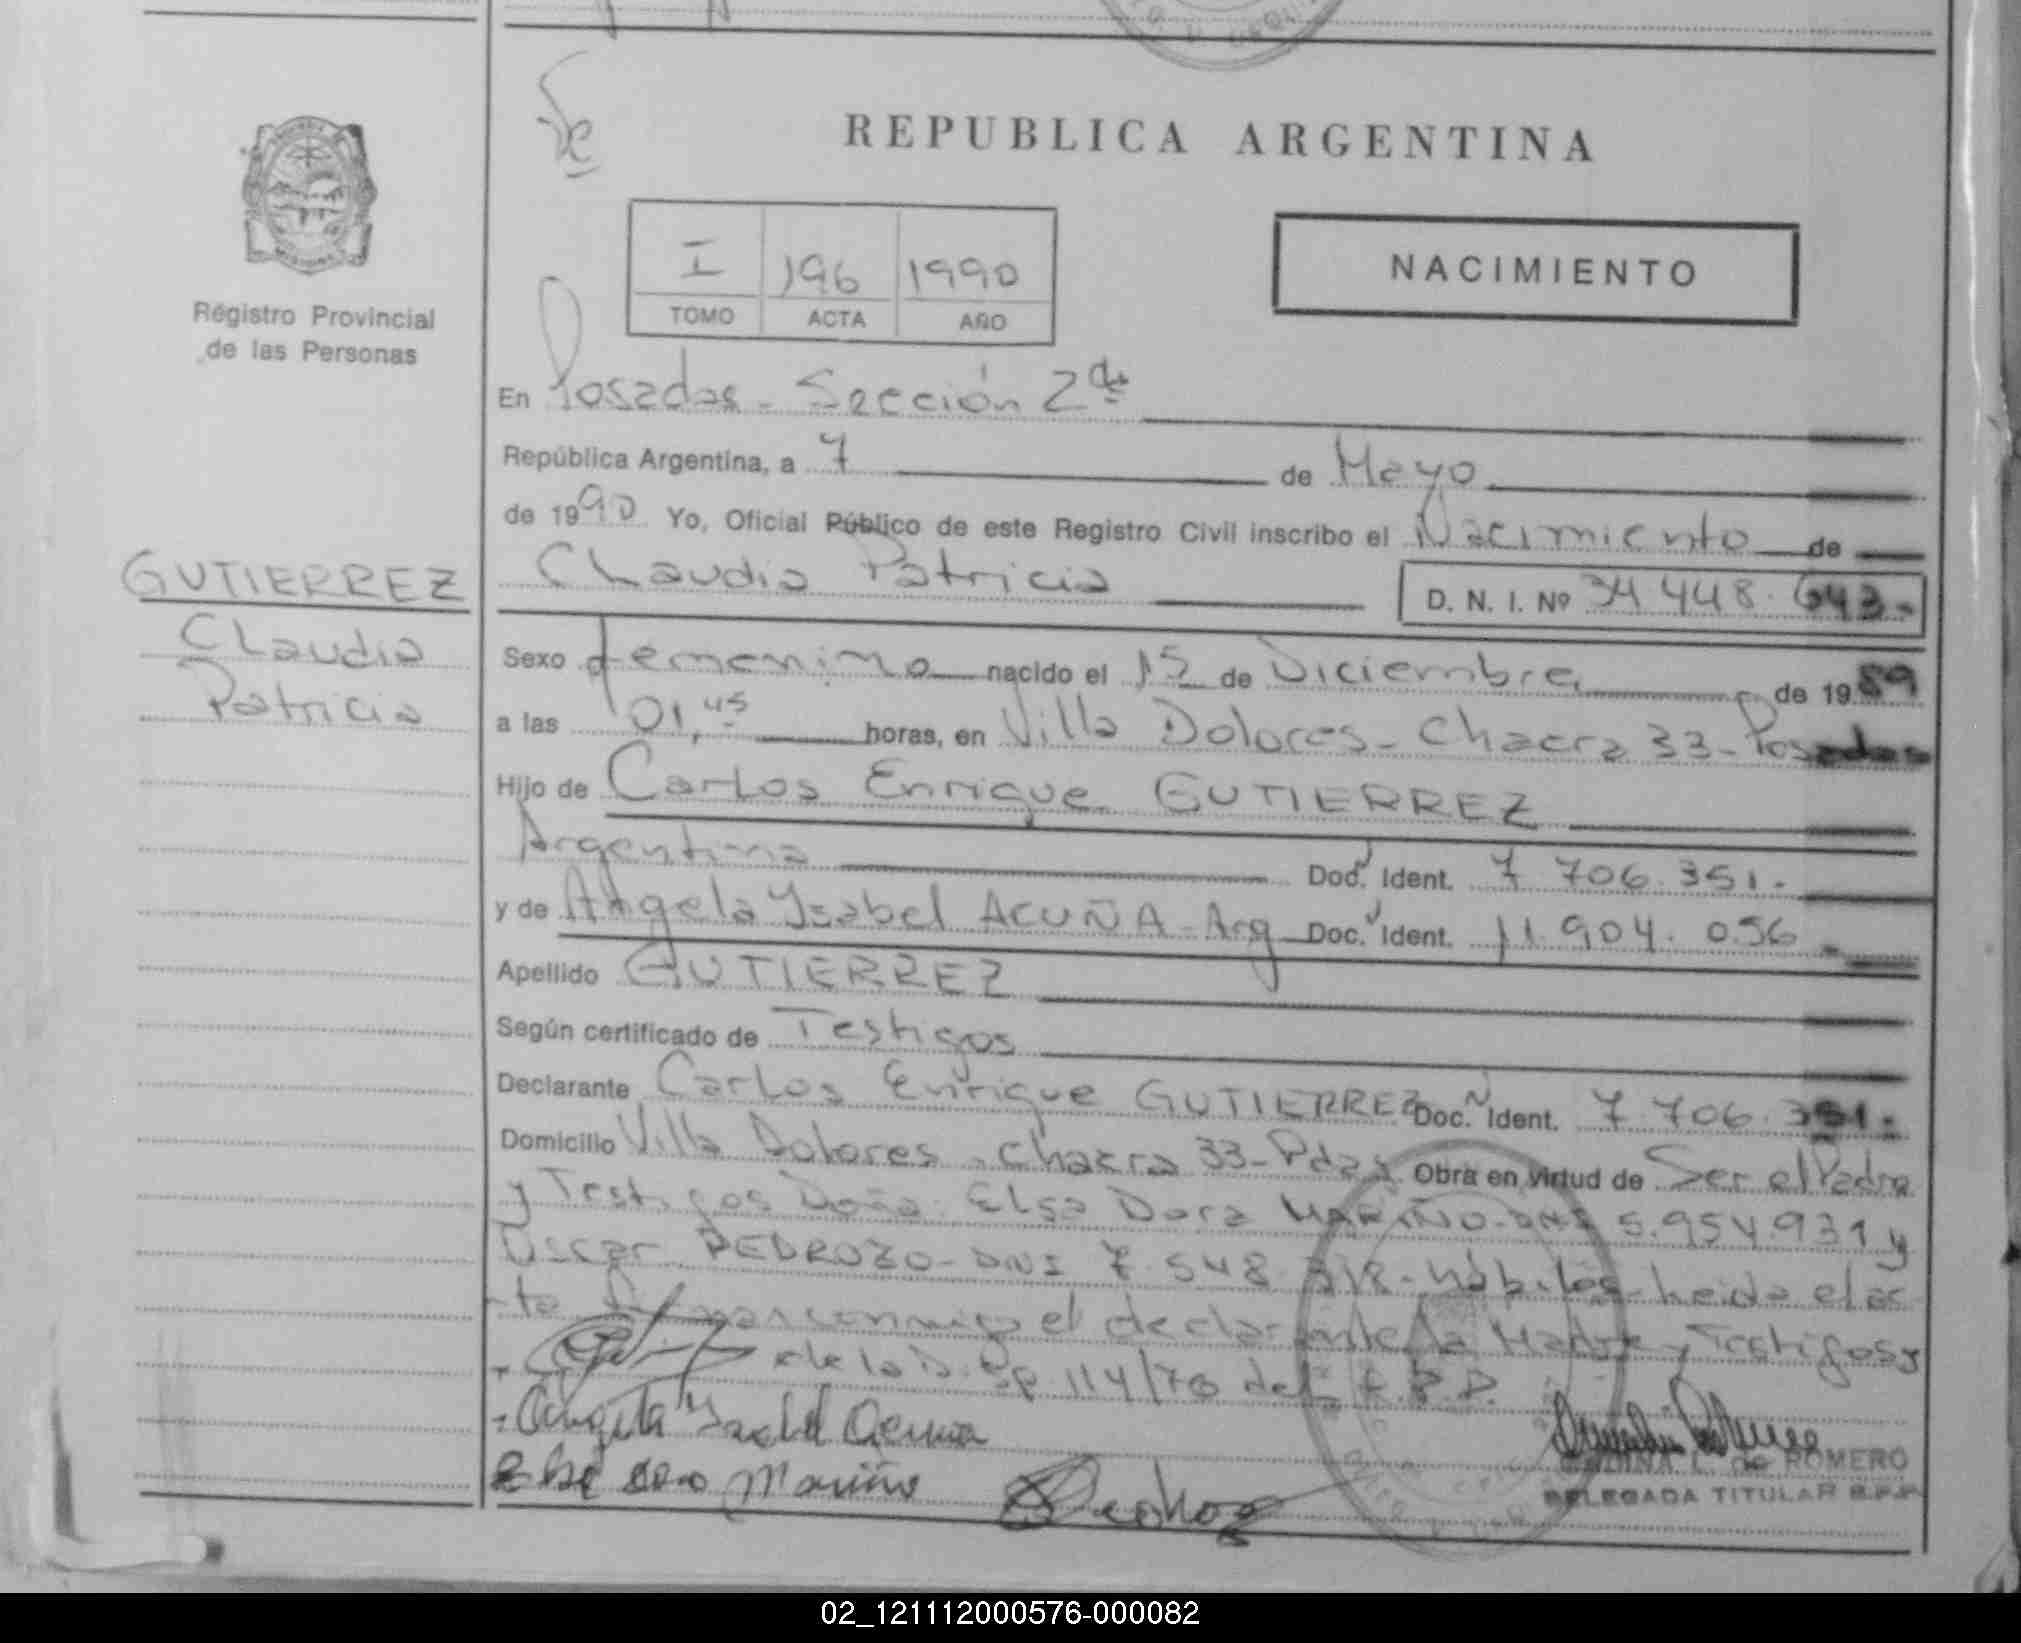 REPUBLICA ARGENTINA
I 196 1990
TOMO ACTA AÑO
NACIMIENTO
Registro Provincial
de las Personas
En Posadas - Sección 2da
República Argentina, a 7 de Mayo
de 1990 Yo, Oficial Público de este Registro Civil inscribo el Nacimiento de
GUTIERREZ
Claudia
Patricia
Claudia Patricia D. N. I. Nº 34 448.643.-
Sexo femenino nacido el 15 de Diciembre de 1989
a las 01,45 horas, en Villa Dolores - Chacra 33 - Posadas
Hijo de Carlos Enrique GUTIERREZ
Argentina Doc. Ident. 7 706.351.-
y de Angela Ysabel ACUÑA - Arg Doc. Ident. 11.904.056.-
Apellido GUTIERREZ
Según certificado de Testigos
Declarante Carlos Enrique GUTIERREZ Doc. Ident. 7 706.351.-
Domicilio Villa Dolores - Chacra 33 - Pdas Obra en virtud de Ser el Padre
y Testigos Doña Elsa Dora MARIÑO - DNI 5.954.931 y
Oscar PEDROZO - DNI 7.548 - hábiles - leida el ac
-ta conmigo el declarante, la Madre y Testigos y
de la Disp. 114/78 del R.P.P.
Angela Ysabel Acuña
Elsa Dora Mariño
L. de ROMERO
DELEGADA TITULAR R.P.P.
02_121112000576-000082